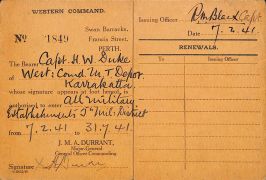 WESTERN COMMAND.
Swan Barracks,
Francis Street,
PERTH.
No 1849
The Bearer Capt. H. W. Duke
of West: Comd M.T. Depot.
Karrakatta
whose signature appears at foot hereof, is
authorised to enter all military
Establishments 5th Mil: District
from 7.2.41 to 31.7.41.
J. M. A. DURRANT,
Major-General
General Officer Commanding
Signature
Issuing Officer Capt.
Date 7.2.41
RENEWALS.
To Issuing Officer